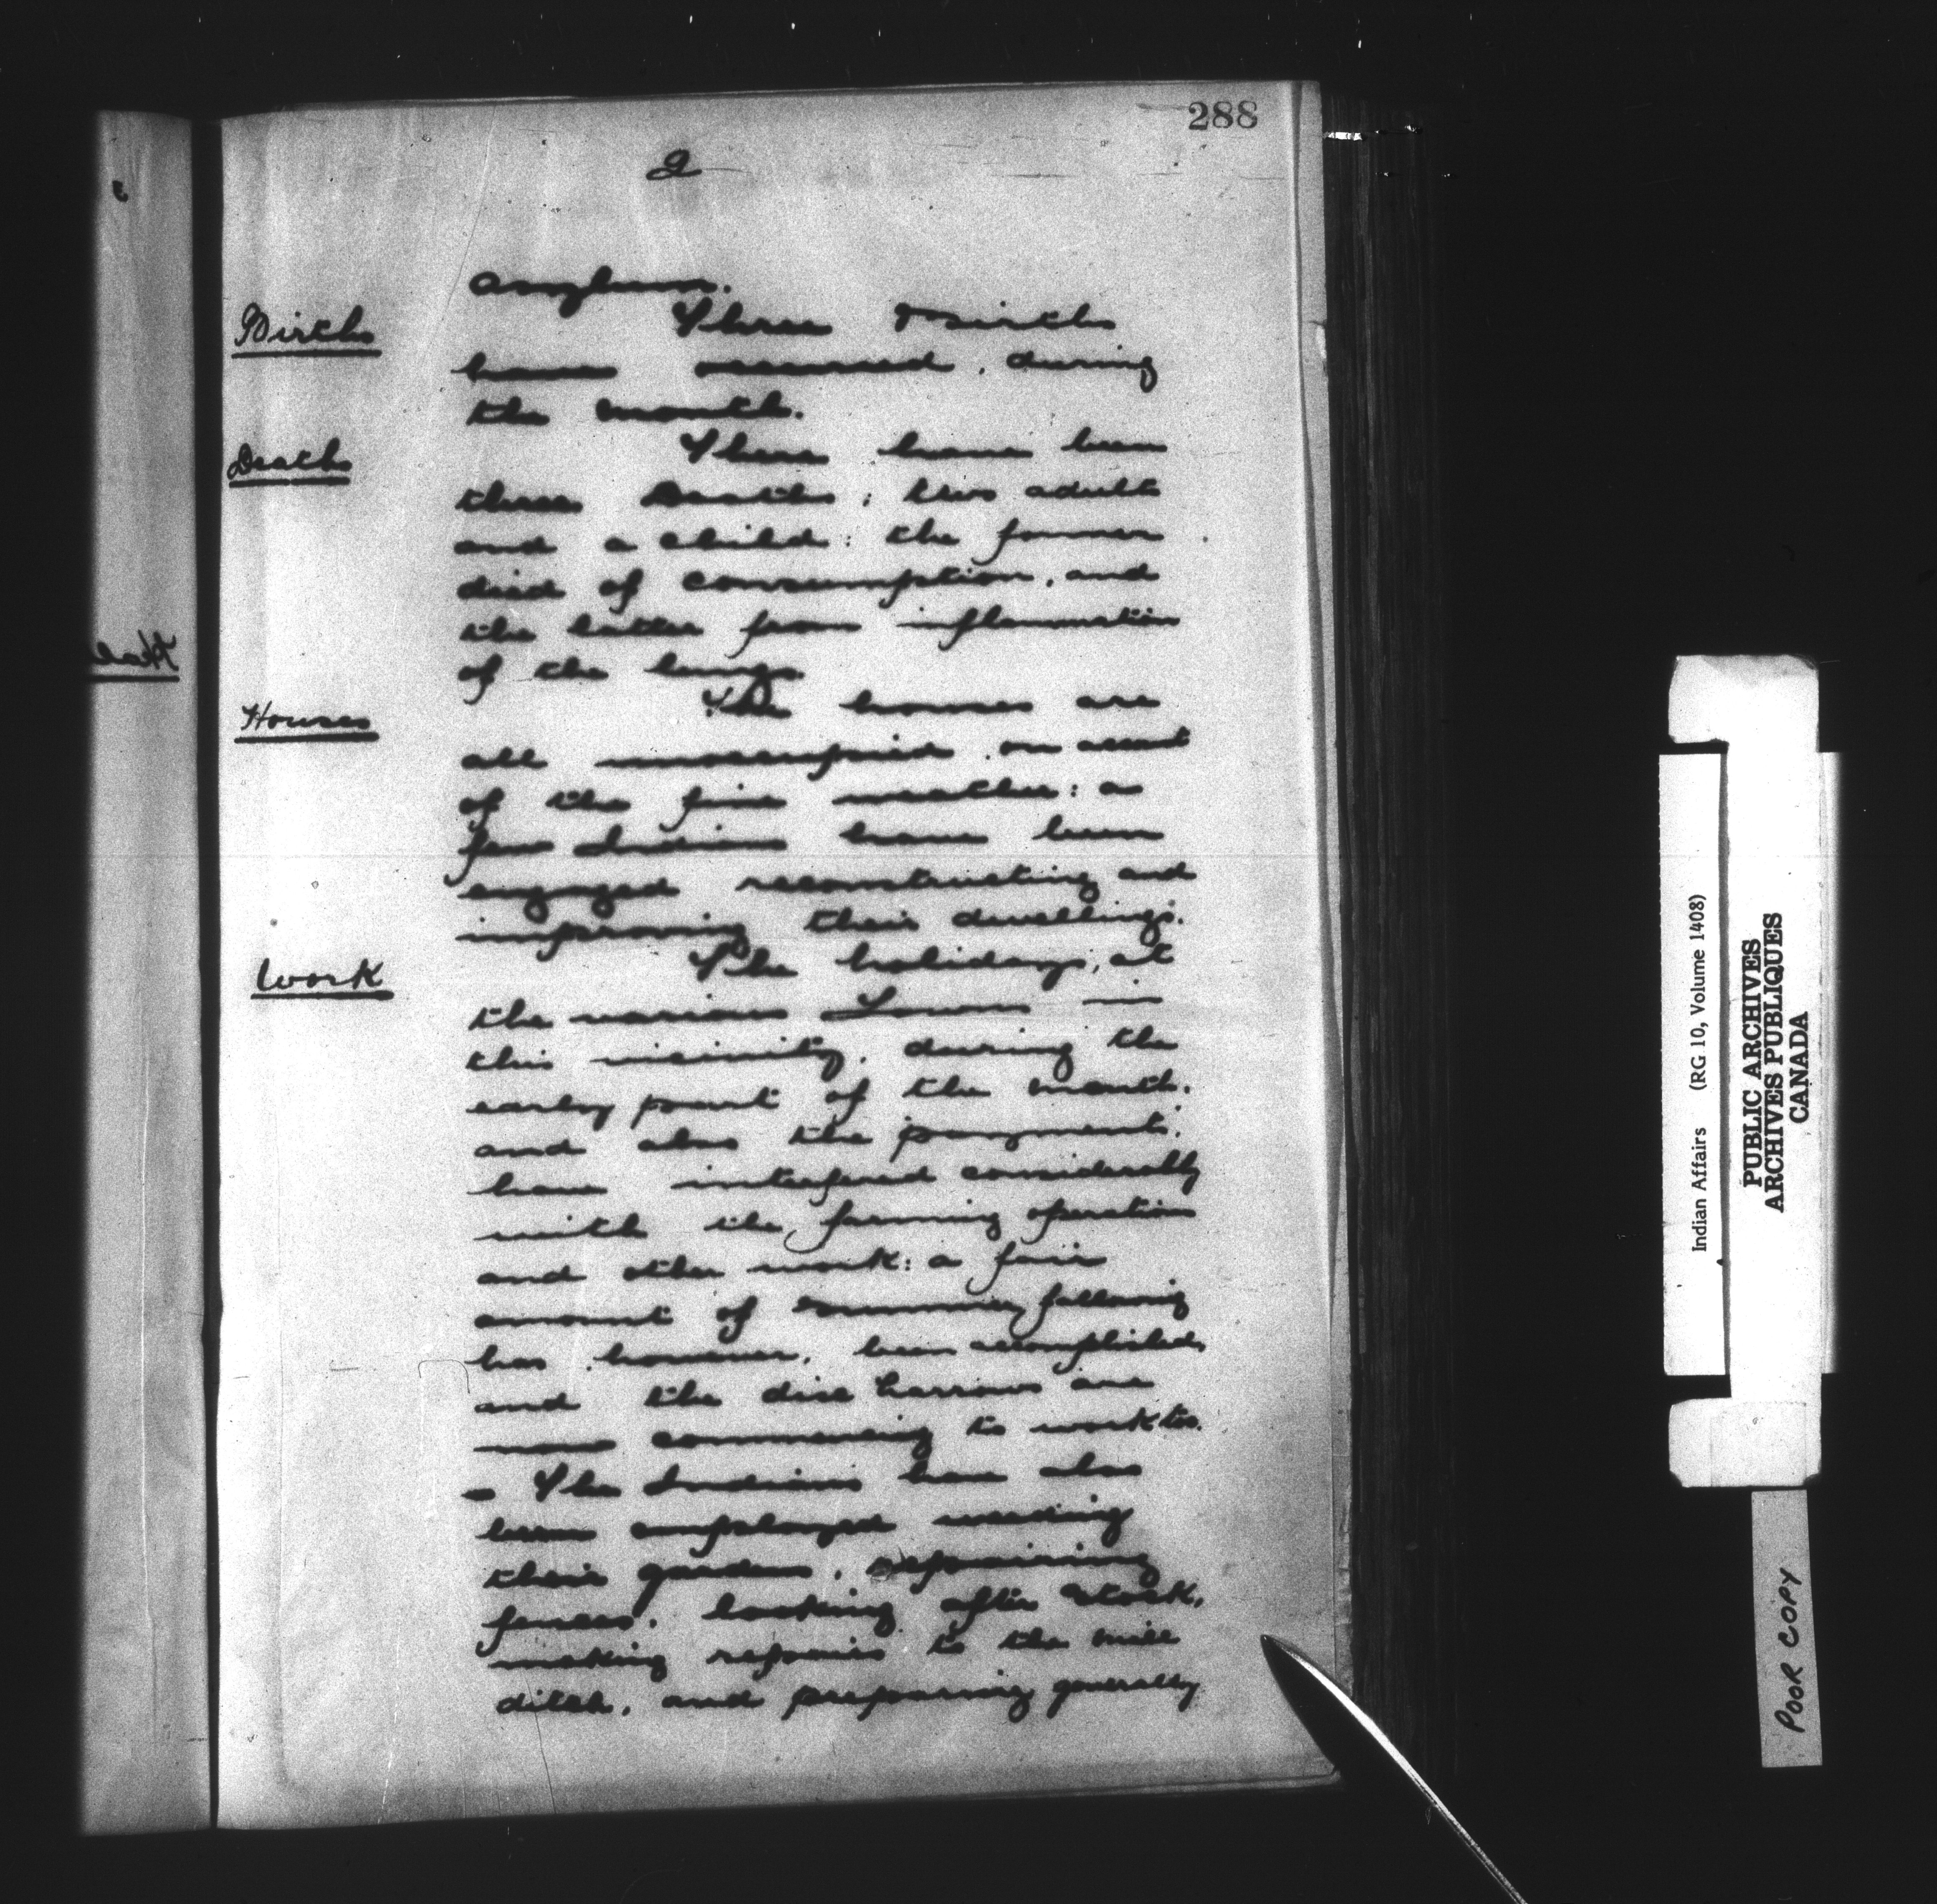 288
2
asylum.
Births
Three Births
have occurred, during
the month.
Deaths
There have been
three Deaths; two adults
and a child: the former
died of consumption, and
the latter from inflammation
of the lungs.
Houses
The houses are
all unoccupied, on account
of the fine weather: a
few Indians have been
engaged reconstructing and
improving their dwellings.
Work
The holidays, at
the various Towns in
this vicinity, during the
early part of the month,
and also the payments,
have interfered considerably
with the farming operations
and other work: a fair
amount of summer fallowing
has, however, been accomplished,
and the disc harrows are
now commencing to work too.
The Indians have also
been employed weeding
their gardens, repairing
fences, looking after stock,
making repairs to the mill
ditch, and preparing generally
Indian Affairs (RG 10, Volume 1408)
PUBLIC ARCHIVES
ARCHIVES PUBLIQUES
CANADA
POOR COPY